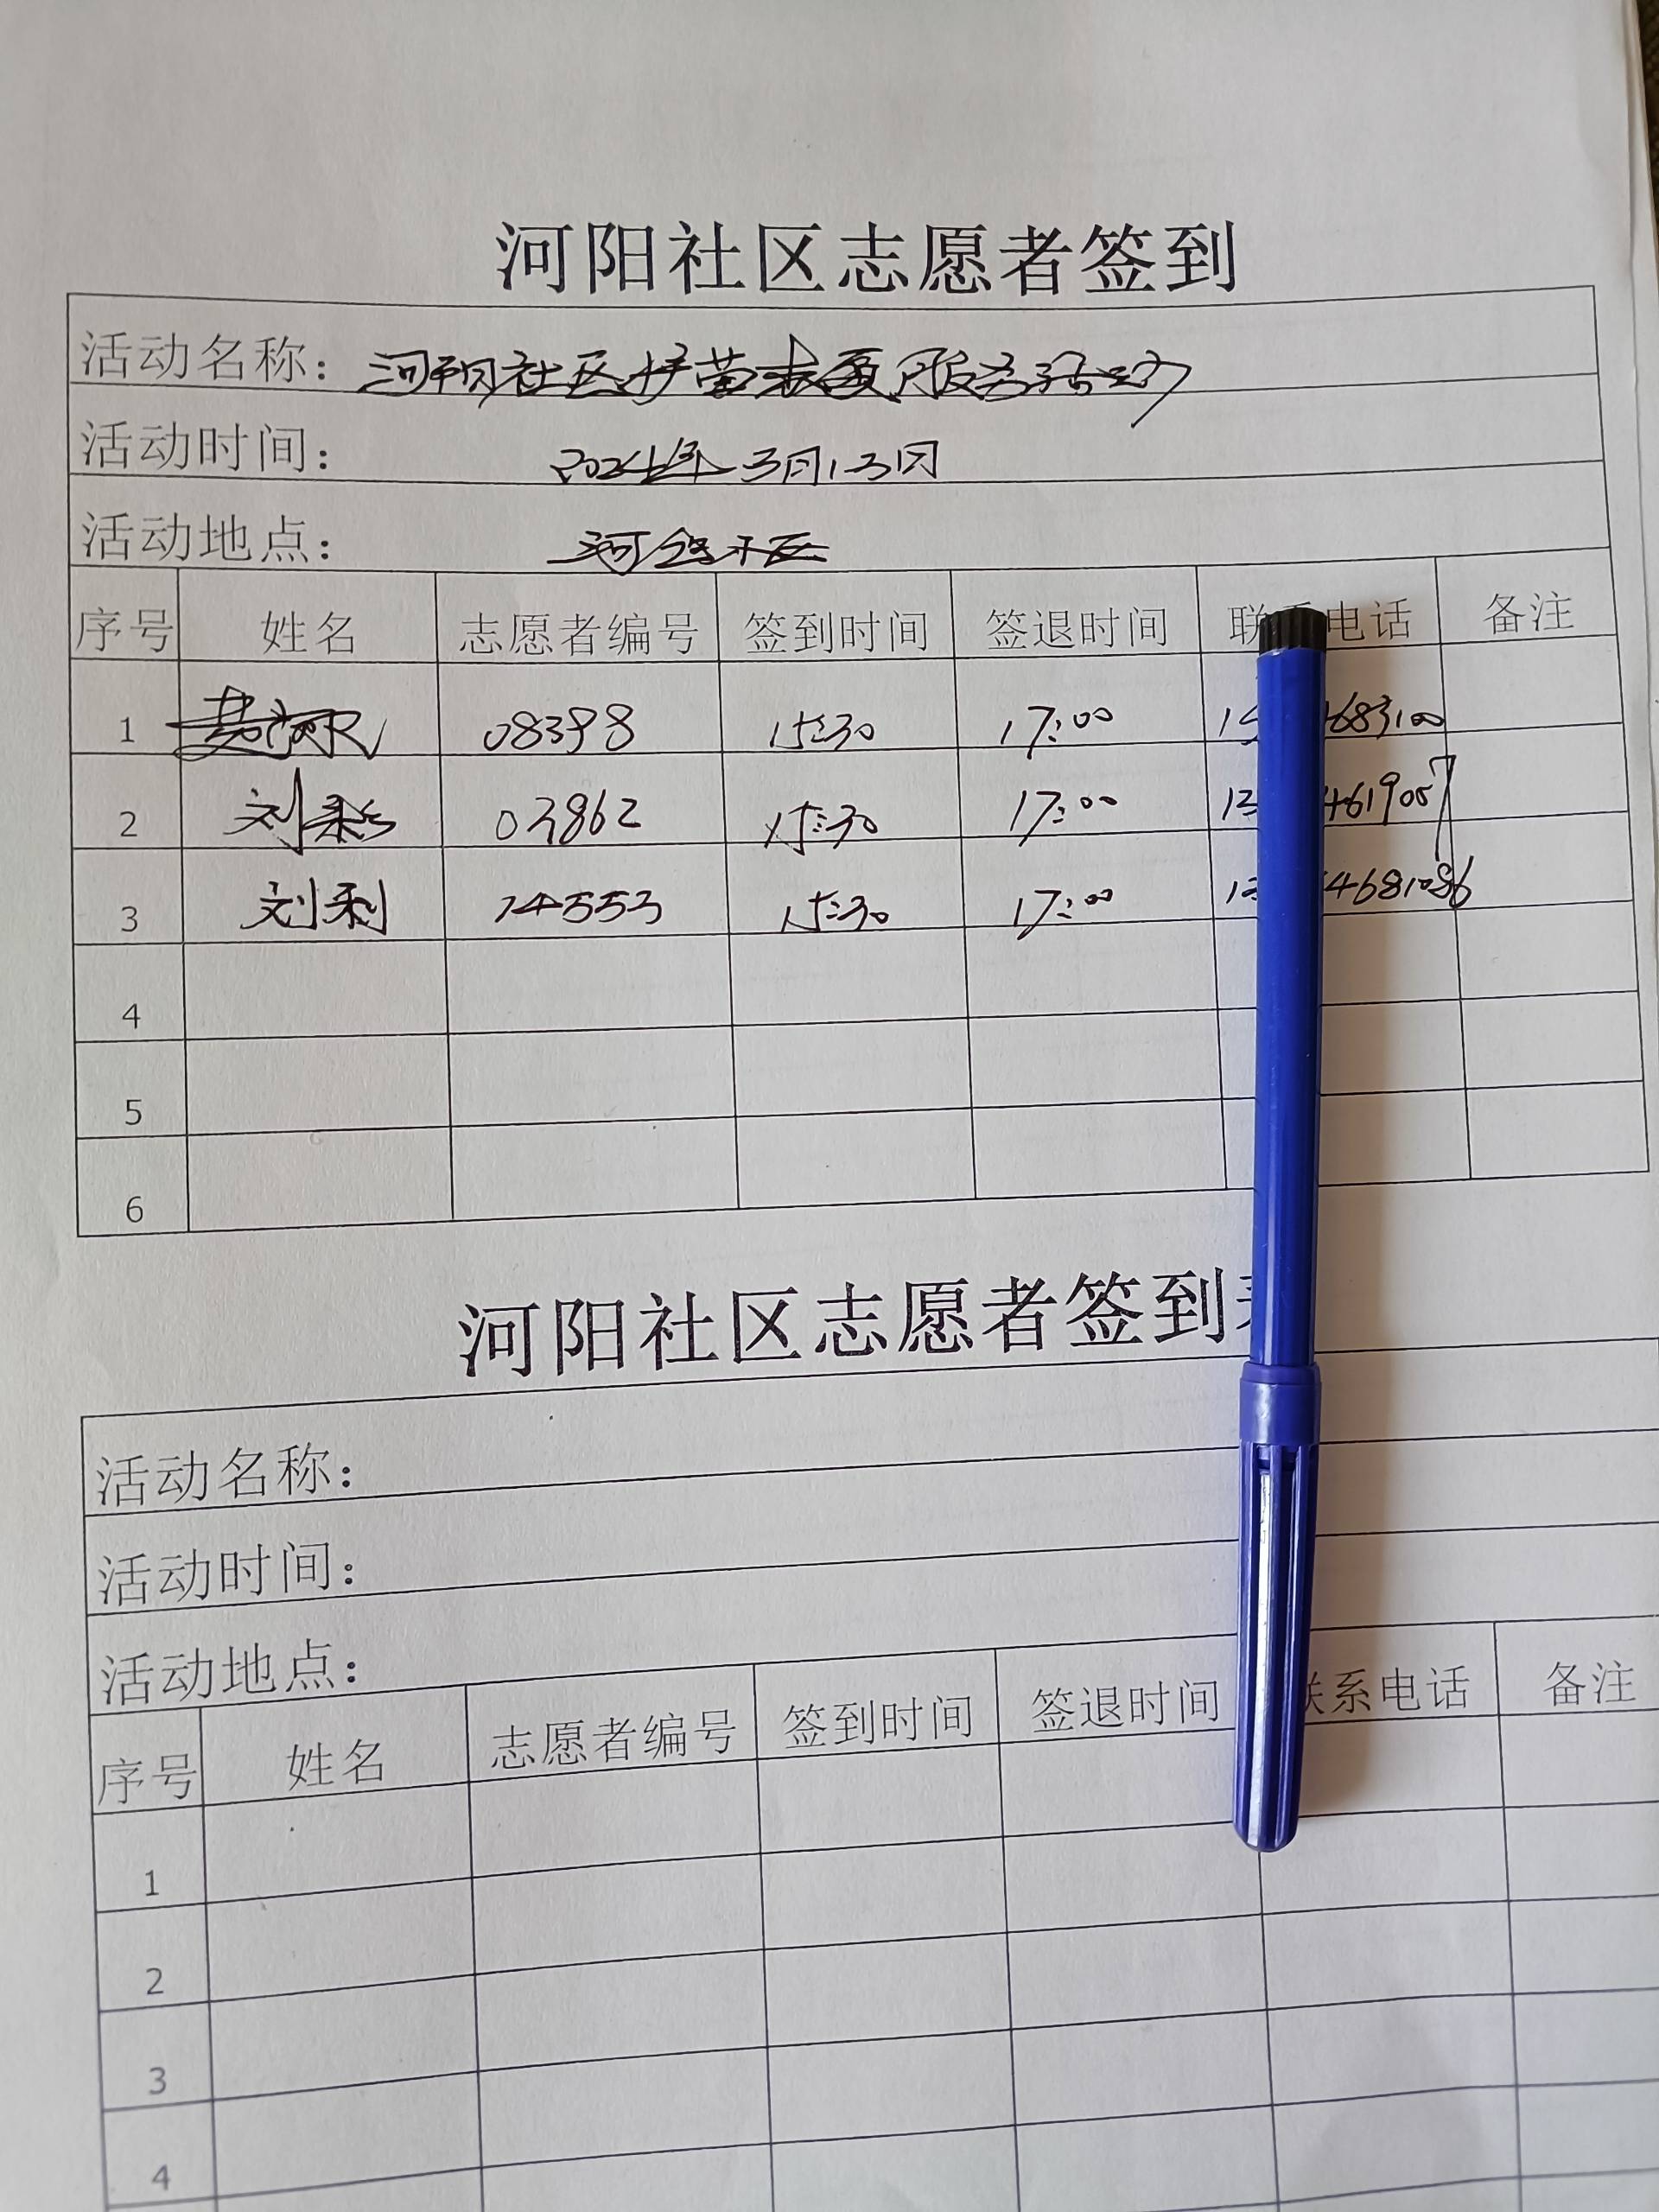 河阳社区志愿者签到
活动名称：河阳社区护苗志愿服务活动
活动时间：2024年3月13日
活动地点：河阳社区
序号 姓名 志愿者编号 签到时间 签退时间 联系电话 备注
1 08398 15:30 17:00
2 刘 02862 15:30 17:00
3 刘利 14553 15:30 17:00
4
5
6
河阳社区志愿者签到
活动名称：
活动时间：
活动地点：
序号 姓名 志愿者编号 签到时间 签退时间 联系电话 备注
1
2
3
4